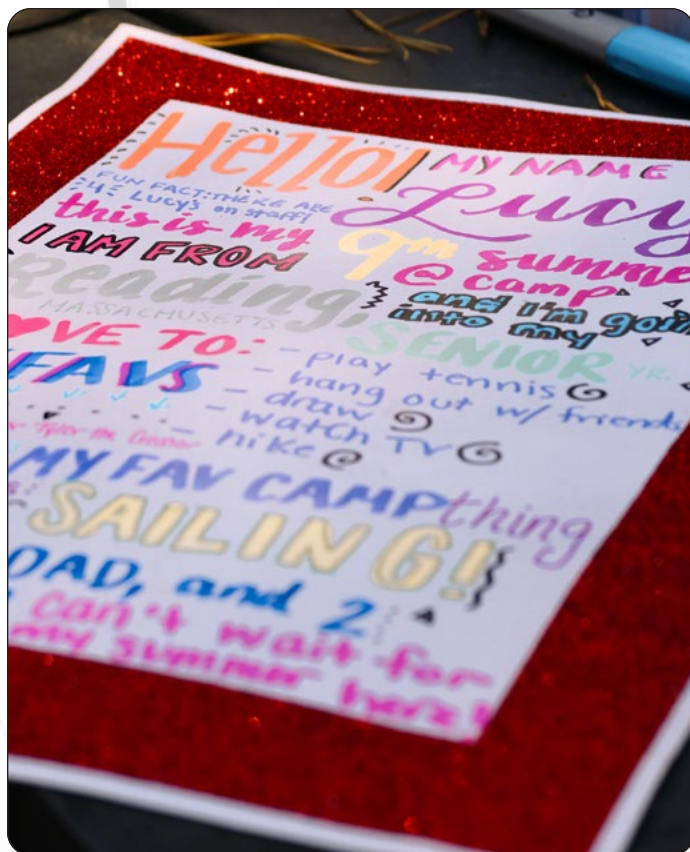 Hello! MY NAME
FUN FACT: THERE ARE
4 LUCY'S on staff!
Lucy
this is my 9th summe
@ camp
I AM FROM
Reading,
MASSACHUSETTS
and I'm goin
into my
SENIOR YR.
OVE TO: - play tennis
- hang out w/ friends
FAVS - draw
- watch TV
- hike
Tyler the Creator
MY FAV CAMP thing
SAILING!
DAD, and 2
can't wait for
my summer here!